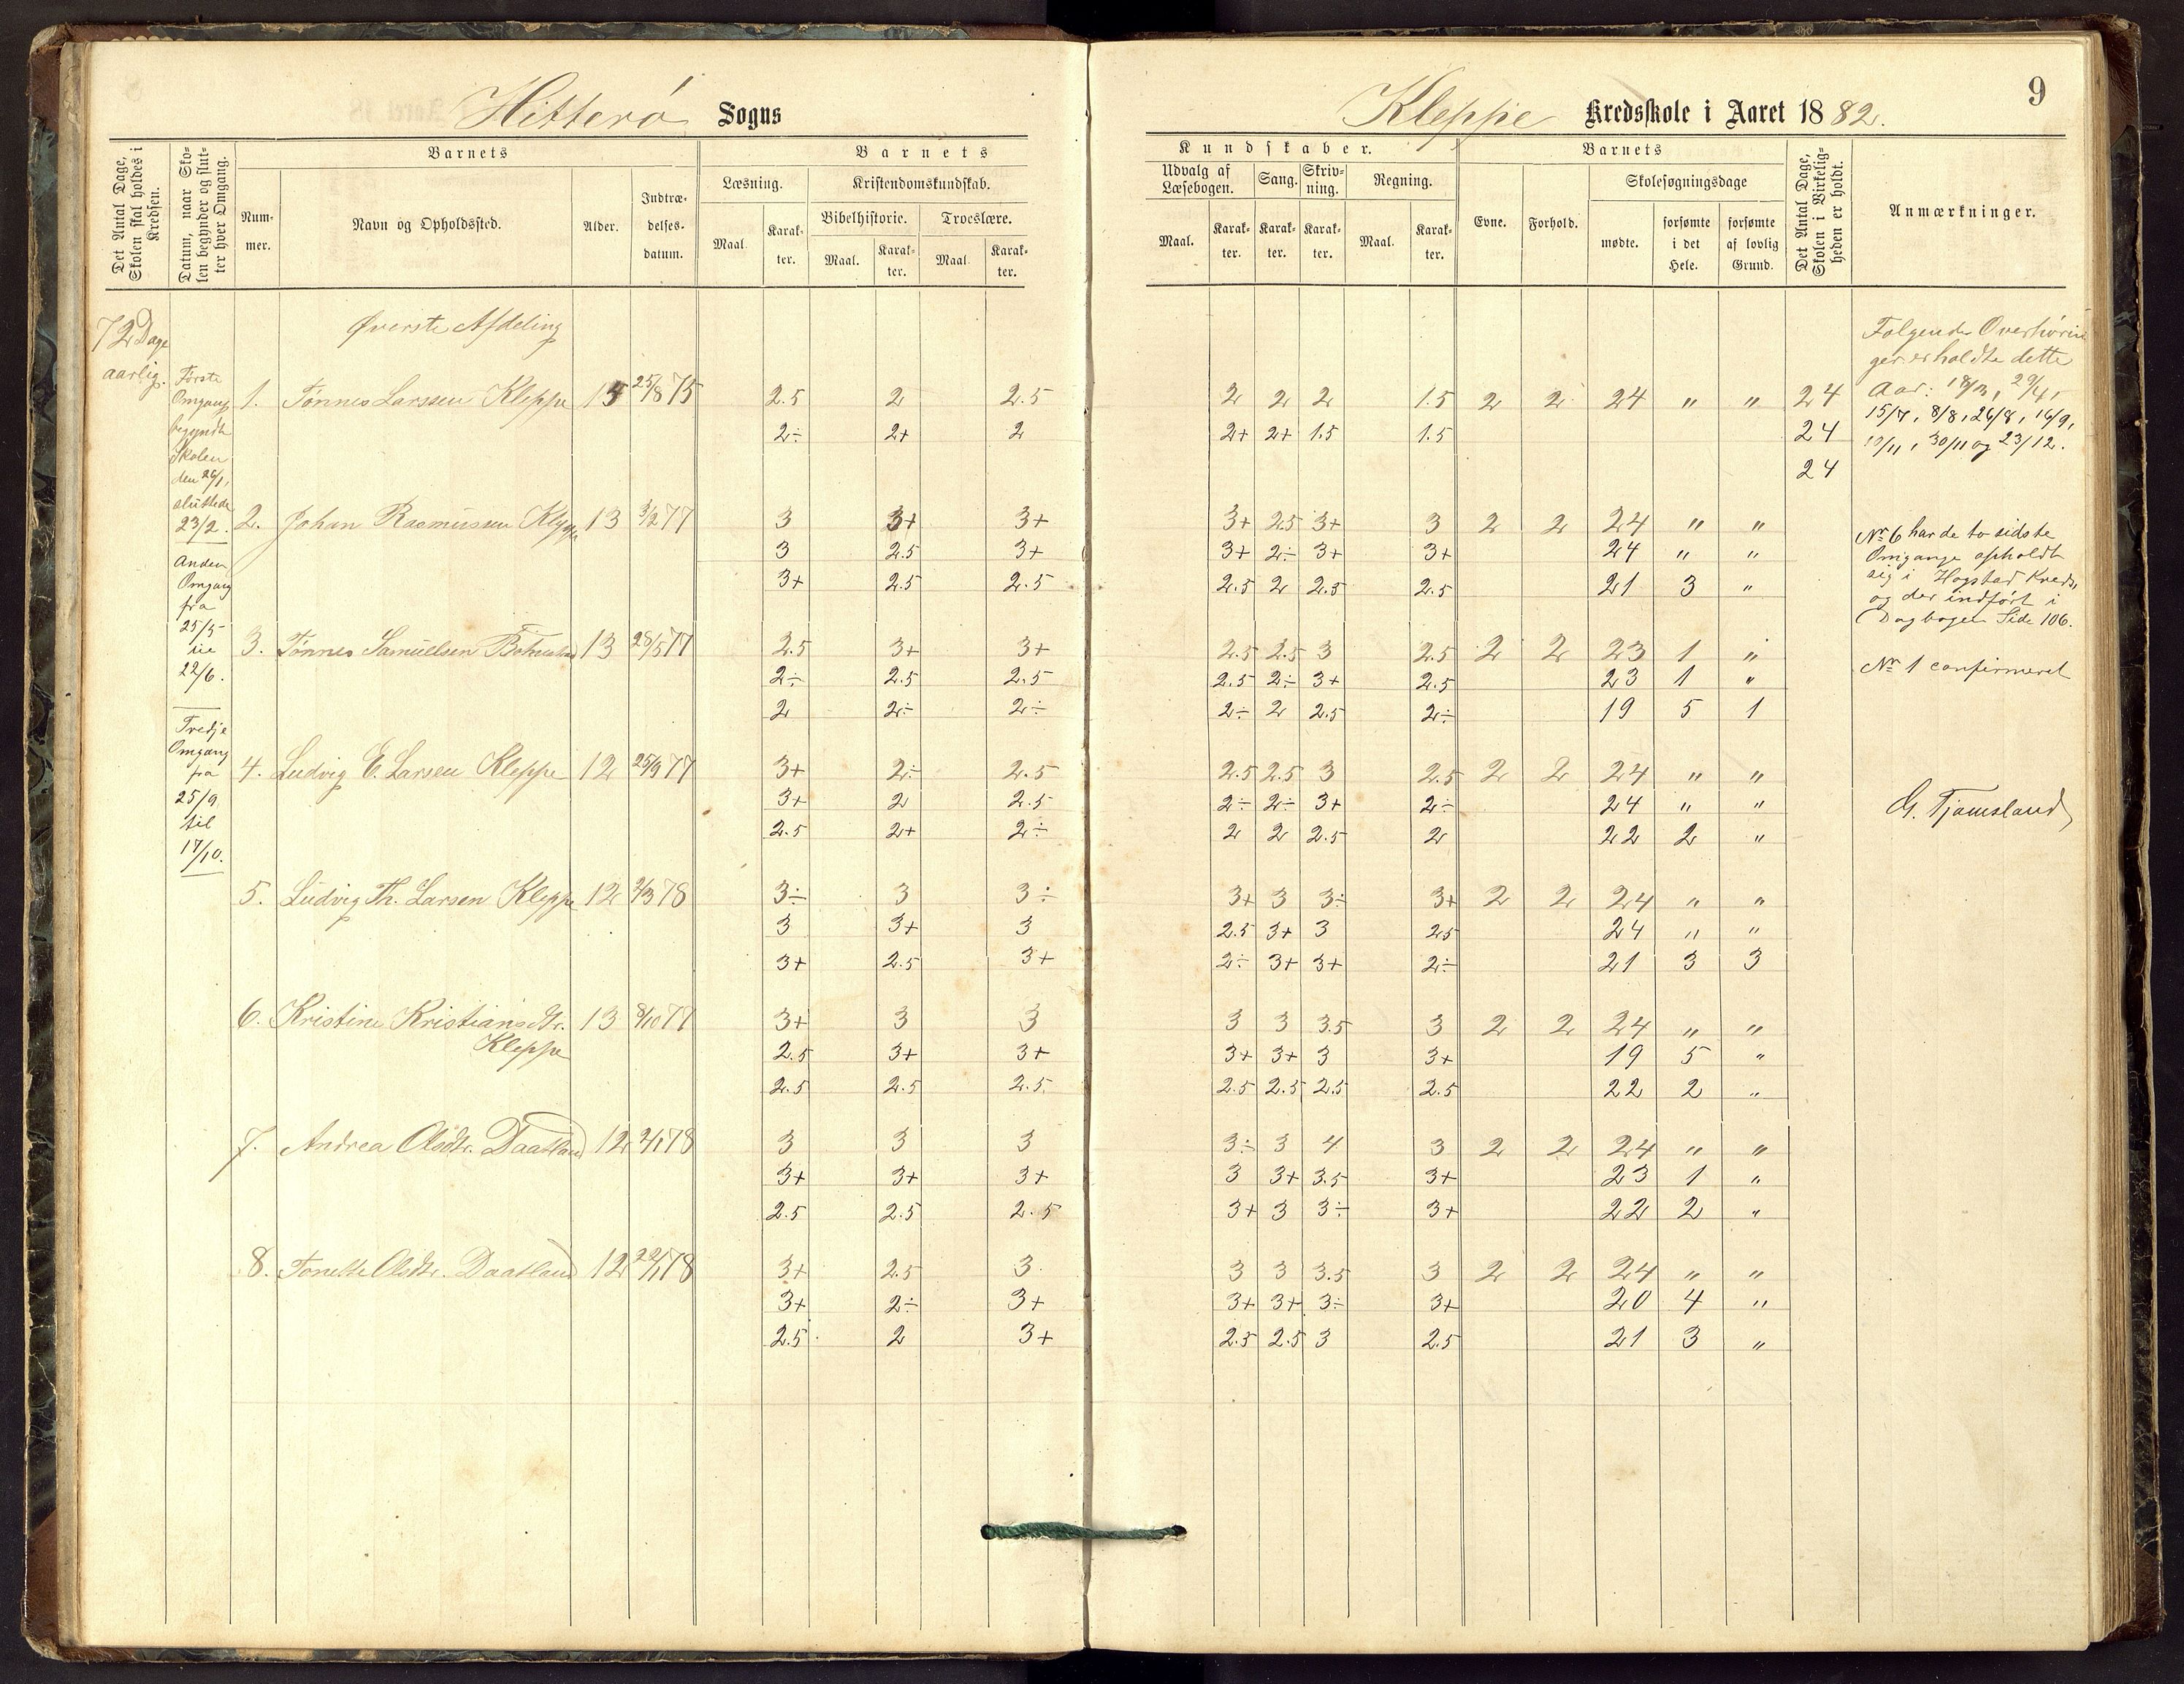 Hitterø Sogns
Kleppe Kredsskole i Aaret 1882.
9
Det Antal Dage, Skolen skal holdes i Kredsen.
Datum, naar Skolen begynder og slutter hver Omgang.
Barnets
Nummer.
Navn og Opholdssted.
Alder.
Indtrædelsesdatum.
Barnets
Læsning.
Kristendomskundskab.
Bibelhistorie.
Troeslære.
Maal.
Karakter.
Maal.
Karakter.
Maal
Karakter.
Kundskaber.
Udvalg af Læsebogen.
Sang.
Skrivning.
Regning.
Maal.
Karakter.
Karakter.
Karakter.
Maal.
Karakter.
Barnets
Evne.
Forhold.
Skolesøgningsdage
mødte.
forsømte i det Hele.
forsømte af lovlig Grund.
Det Antal Dage, Skolen i Virkeligheden er holdt.
Anmærkninger.
72 Dage
aarlig.
Første
Omgang
begyndte
Skolen
den 26/1,
sluttede
23/2.
Anden
Omgang
fra
25/5
til
22/6.
Tredje
Omgang
fra
25/9
til
17/10.
Øverste Afdeling
1. Tønnes Larssen Kleppe 15 25/8 75 2.5 2 2.5 2 2 2 1.5 2 2 24 " " 24
2÷ 2+ 2 2+ 2+ 1.5 1.5 24
24
2. Johan Rasmussen Kleppe 13 3/2 77 3 3+ 3+ 3+ 2.5 3+ 3 2 2 24 " "
3 2.5 3+ 3+ 2÷ 3+ 3+ 24 " "
3+ 2.5 2.5 2.5 2 2.5 2.5 21 3 "
3. Tønnes Samuelsen 13 28/5 77 2.5 3+ 3+ 2.5 2.5 3 2.5 2 2 23 1 "
2÷ 2.5 2.5 2.5 2÷ 3+ 2.5 23 1 "
2 2÷ 2÷ 2÷ 2 2.5 2÷ 19 5 1
4. Ludvig E. Larsen Kleppe 12 25/9 77 3+ 2÷ 2.5 2.5 2.5 3 2.5 2 2 24 " "
3+ 2 2.5 2÷ 2÷ 3+ 2÷ 24 " "
2.5 2+ 2÷ 2 2 2.5 2 22 2 "
5. Ludvig Th. Larsen Kleppe 12 2/3 78 3÷ 3 3÷ 3+ 3 3÷ 3+ 2 2 24 " "
3 3+ 3 2.5 3+ 3 2.5 24 " "
3+ 2.5 3+ 2÷ 3+ 3+ 2÷ 21 3 3
6. Kristine Kristiansdtr. 13 8/10 77 3+ 3 3 3 3 3.5 3 2 2 24 " "
Kleppe 2.5 3+ 3+ 3+ 3+ 3 3+ 19 5 "
2.5 2.5 2.5 2.5 2.5 2.5 2.5 22 2 "
7. Andrea Olsdtr. Daatland 12 2/1 78 3 3 3 3÷ 3 4 3 2 2 24 " "
3+ 3+ 3+ 3 3+ 3.5 3+ 23 1 "
2.5 2.5 2.5 3+ 3 3÷ 3+ 22 2 "
8. Tonette Olsdtr. Daatland 12 22/1 78 3+ 2.5 3 3 3 3.5 3 2 2 24 " "
3+ 2÷ 3+ 3+ 3+ 3÷ 3+ 20 4 "
2.5 2 3+ 2.5 2.5 3 2.5 21 3 "
Følgende Overhørin
ger er holdte dette
Aar: 18/3, 29/4,
15/7, 8/8, 26/8, 16/9,
10/11, 30/11 og 23/12.
No 6 har de to sidste
Omgange opholdt
sig i Hogstad Kreds,
og der indført i
Dagbogen Side 106.
No 1 confirmeret
G. Tjamsland